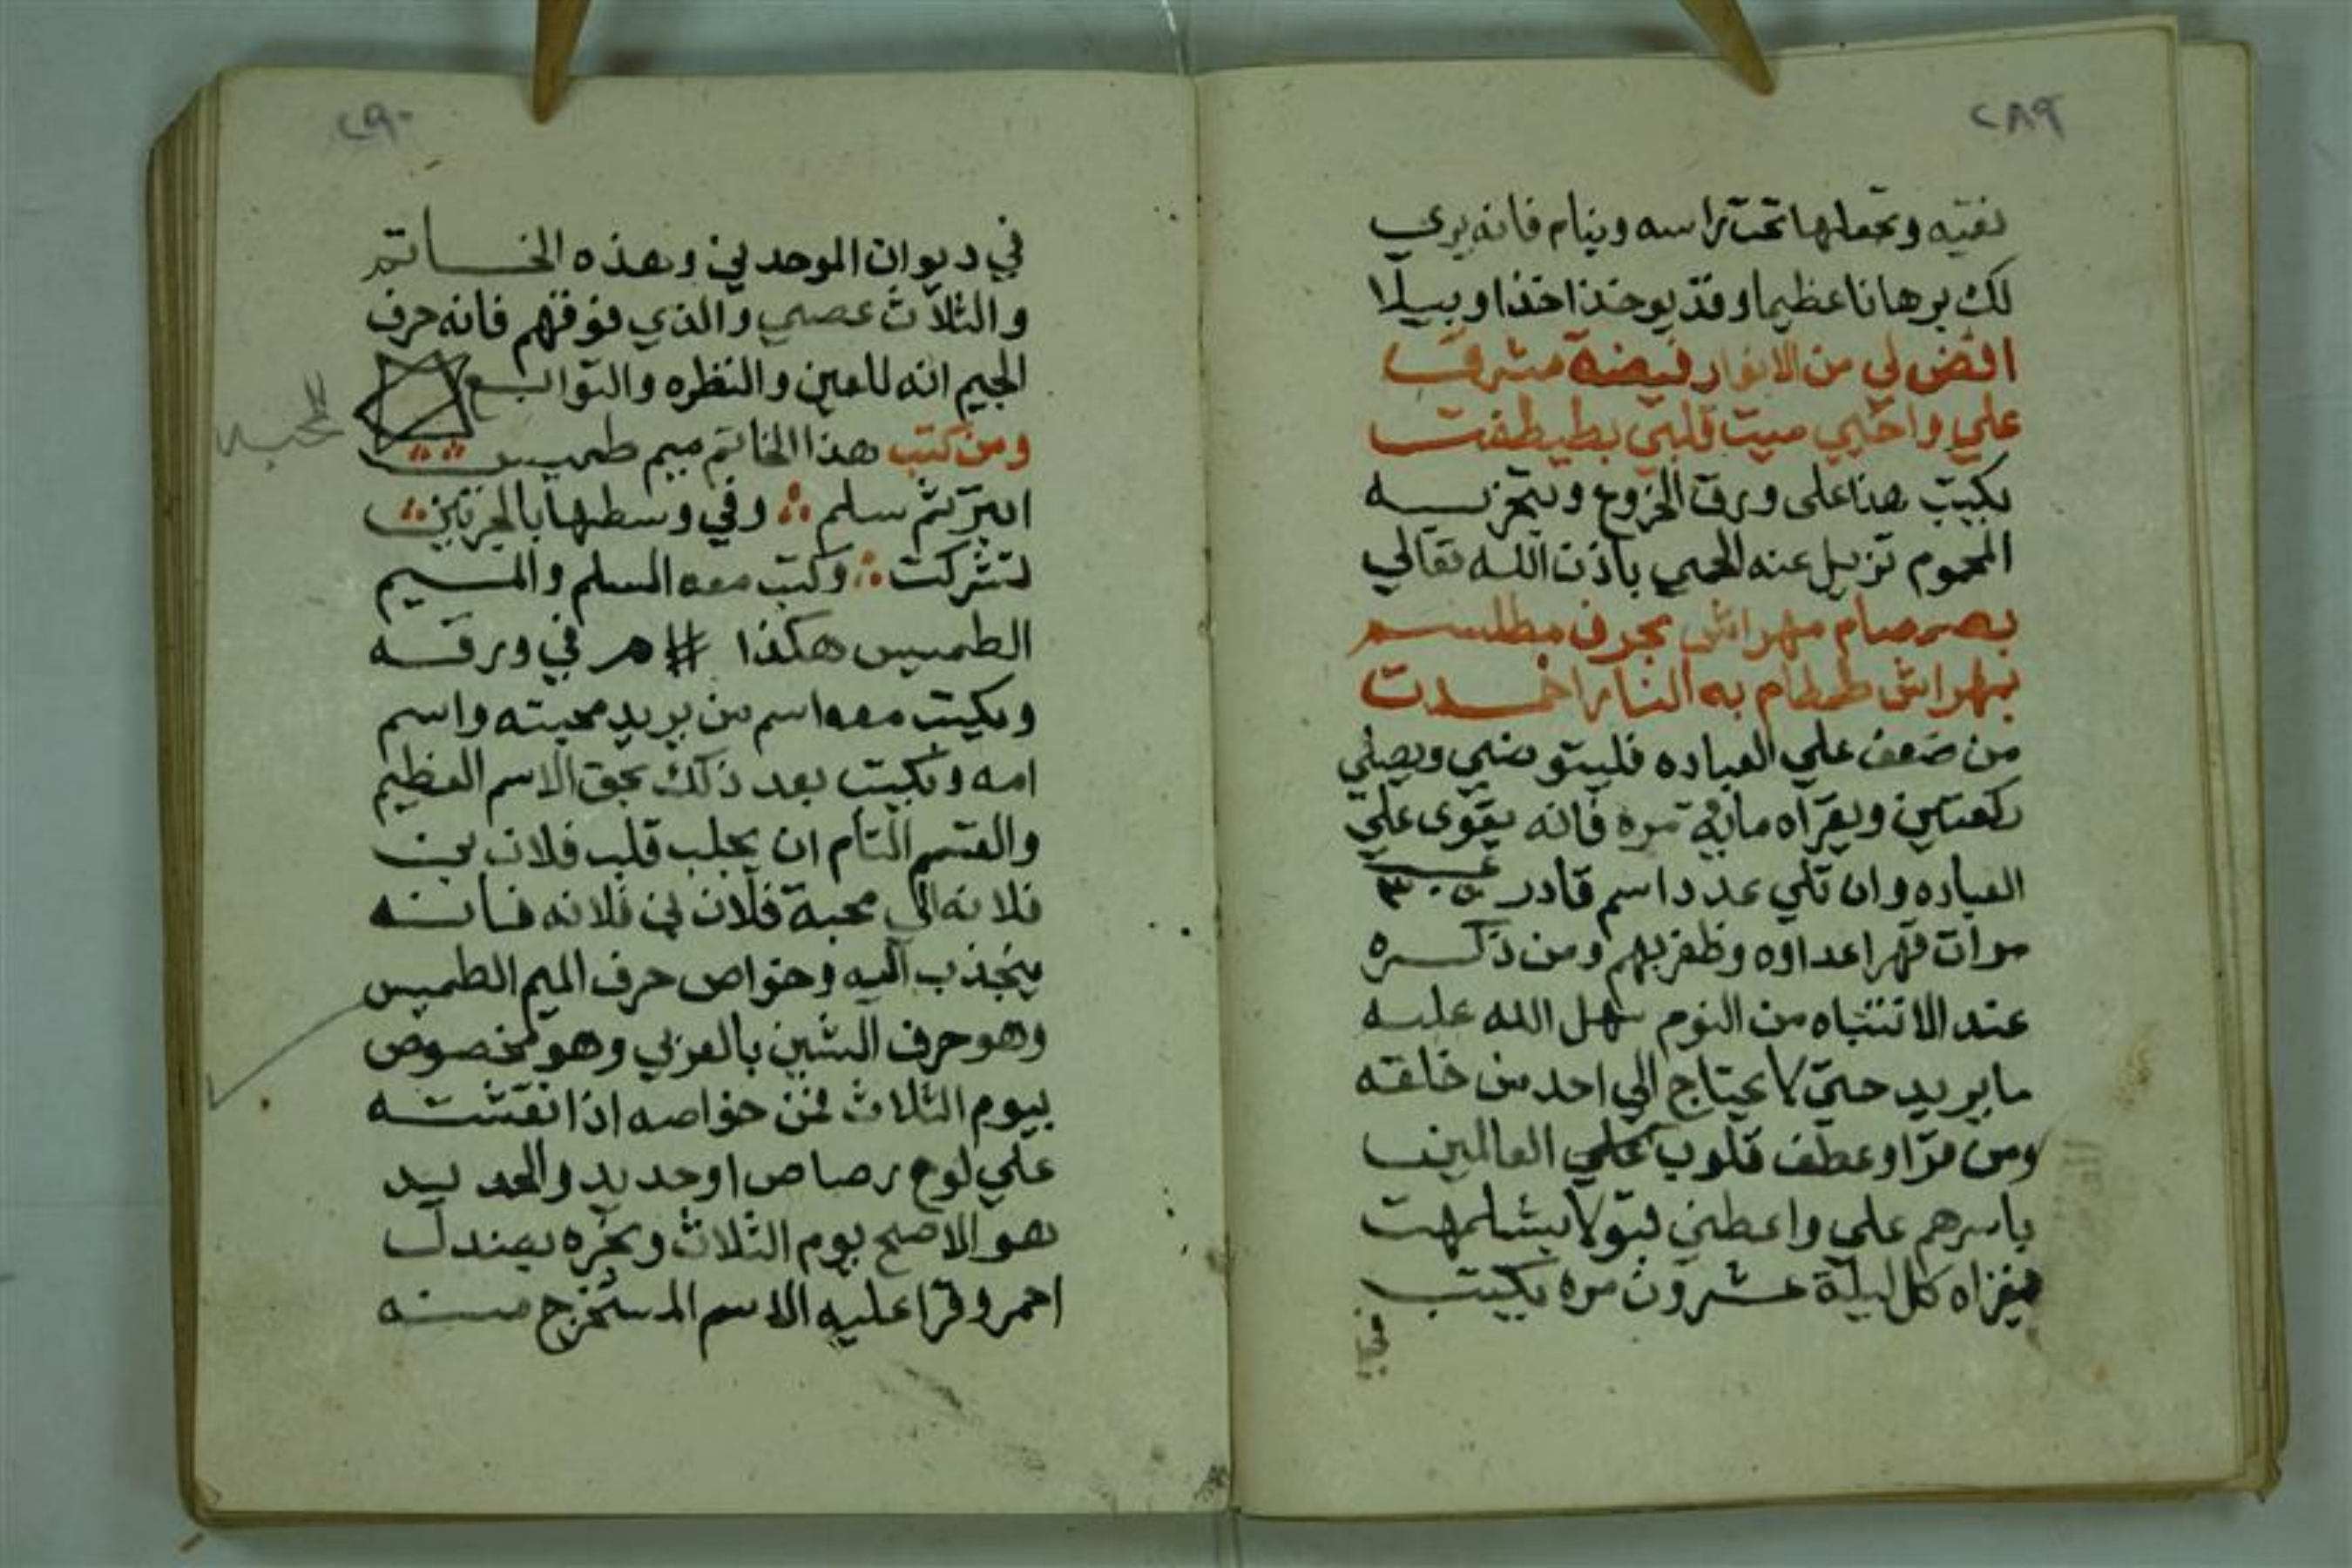 ٢٨٩
نقيه وتجعلها تحت راسه وينام فانه يري
لك برهانا عظيما وقد يوخذ اخذا وبيلا
افض لي من الانوار فيضة مشرق
علي واحيي ميت قلبي بطيطفت
يكتب هذا علي ورق الخروع ويتبخر به
المحموم تزيل عنه الحمي باذن الله تعالي
بصمصام مهراش بحرف مطلسم
بهراش طمطام به النار اخمدت
من ضعف علي العباده فليتوضي ويصلي
ركعتين ويقراه ماية مره فانه يقوي علي
العباده وان تلي عدد اسم قادر
مرات قهر اعداوه وظفر بهم ومن ذكره
عند الانتباه من النوم سهل الله عليه
ما يريد حتي لا يحتاج الي احد من خلقه
ومن قرا وعطف قلوب علي العالمين
باسرهم علي واعطني قبولا بشلمهت
يقراه كل ليلة عشرون مره يكتب
في
٢٩٠
في ديوان الموحدين وهذه الخاتم
والثلاث عصي والذي فوقهم فانه حرف
الجيم انه للعين والنظره والتوابع
ومن كتب هذا الخاتم ميم طميس
ابتر ثم سلم وفي وسطها بالجرتين
لتشركت وكتب معه السلم والميم
الطميس هكذا # م في ورقه
ويكتب معه اسم من يريد محبته واسم
امه ويكتب بعد ذلك بحق الاسم العظيم
والقسم التام ان يجلب قلب فلان بن
فلانه الي محبة فلان بن فلانه فانه
ينجذب اليه وخواص حرف الميم الطميس
وهو حرف الشين بالعربي وهو مخصوص
بيوم الثلاث فمن خواصه اذا نقشته
علي لوح رصاص او حديد والحديد
هو الاصح يوم الثلاث وبخره بصندل
احمر وقرا عليه الاسم المستخرج منه
لمحبه